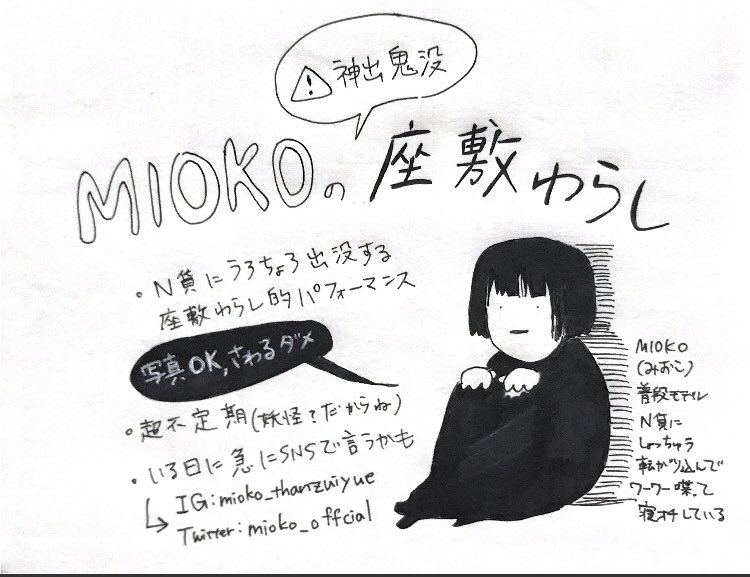 ⚠神出鬼没
MIOKOの座敷わらし
・N貸にうろちょろ出没する
座敷わらし的パフォーマンス
写真OK,さわるダメ
・超不定期(妖怪?だからね)
・いる日に急にSNSで言うかも
↳IG:mioko_thanzuiyue
Twitter:mioko_offcial
MIOKO
(みおこ)
普段モデル
N貸に
しょっちゅう
転がり込んで
ワーワー喋って
寝オチしている